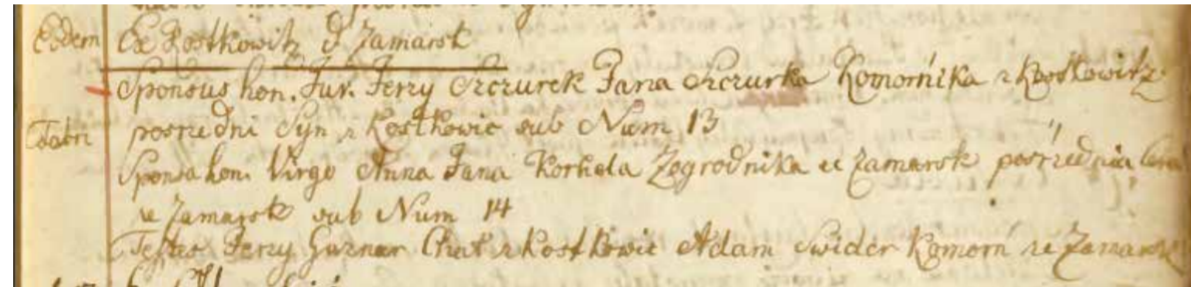 Eodem Ex Kostkowitz & Zamarsk
Sponsus hon. Juv. Jerzy Szczurek Jana Szczurka Komornika z Kostkowitz
posrzedni Syn z Kostkowic sub Num 13
Sponsa hon. Virgo Anna Jana Korhela Zogrodnika ze Zamarsk posrzednia Cera
ze Zamarsk sub Num 14
Testes Jerzy Gurniar Chał z Kostkowic Adam Swider Komorn ze Zamarsk